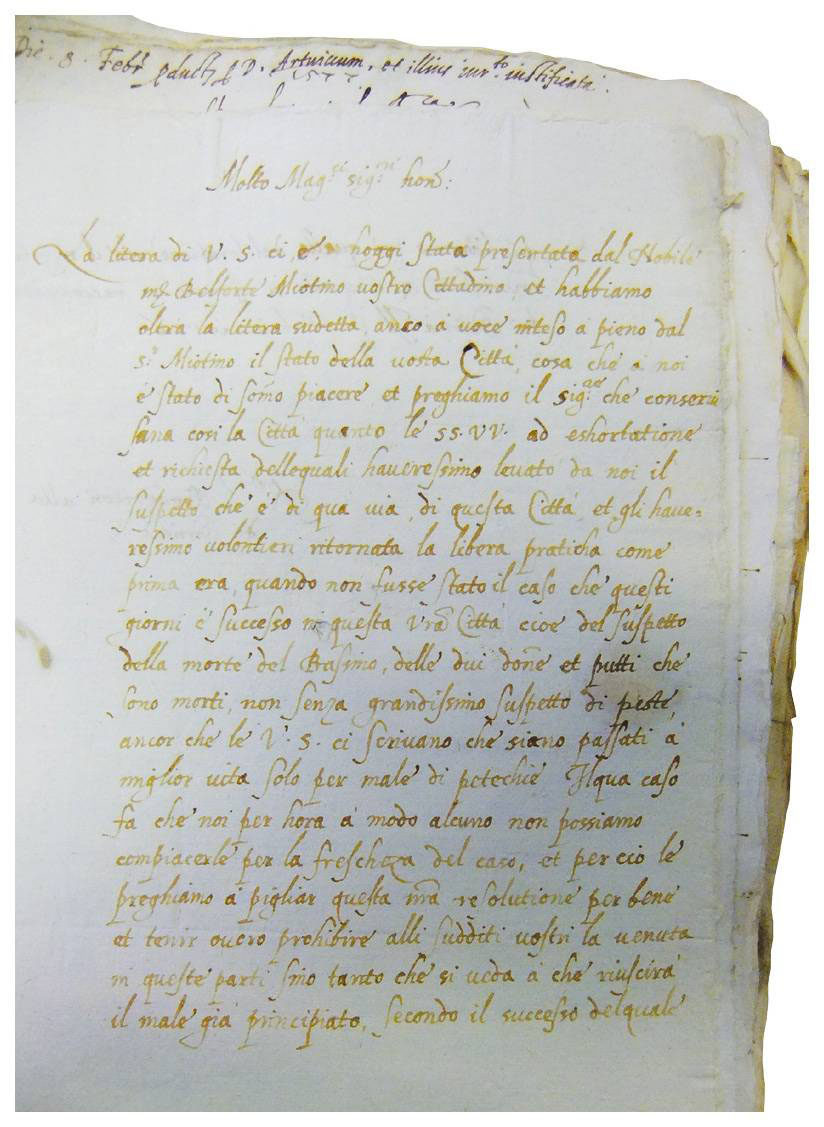 Die. 8. Febr. D. Artuicum, et illius iustificata.
1577
Molto Mag.ci sig.ri hon.
La litera di V. S. ci é hoggi stata presentata dal Nobile
m. Belforte Miotino vostro Cittadino, et habbiamo
oltra la litera sudetta, anco á voce inteso á pieno dal
s.r Miotino il stato della vosta Città, cosa che á noi
é stato di somo piacere et preghiamo il sig.re che conservi
sana cosi la Città quanto le SS. VV. ad eshortatione
et richiesta dellequali haveressimo levato da noi il
suspetto che é di qua via, di questa Città et gli have=
ressimo volontieri ritornata la libera praticha come
prima era, quando non fusse stato il caso che questi
giorni é successo in questa vra Città cioe del suspetto
della morte del Brasimo, delle dui done et putti che
sono morti, non senza grandissimo suspetto di peste,
ancor che le V. S. ci scrivano che siano passati á
miglior vita solo per male di petechie Ilqua caso
fa che noi per hora á modo alcuno non possiamo
compiacerle per la frescheza del caso, et per ció le
preghiamo á pigliar questa nra resolutione per bene
et tenir overo prohibire alli sudditi vostri la venuta
in queste parti sino tanto che si veda á che riuscirá
il male giá principiato, secondo il successo delquale